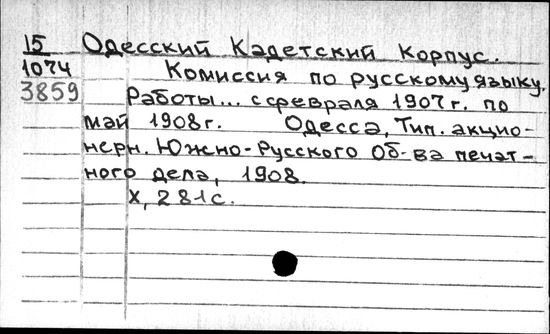 15 Одесский Кадетский Корпус.
1074 Комиссия по русскому языку.
3859 Работы... с февраля 1907 г. по
май 1908 г. Одесса, Тип. акцио-
нерн. Южно-Русского Об-ва печат-
ного дела, 1908.
X, 281 с.